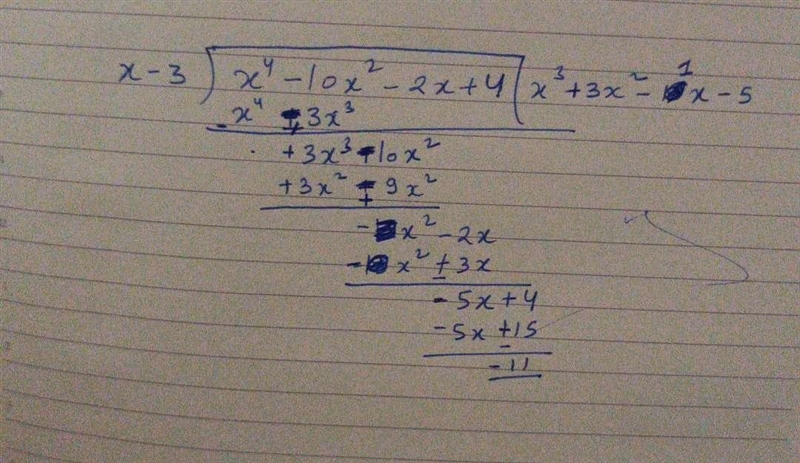 x - 3 ) x⁴ - 10x² - 2x + 4 ( x³ + 3x² - 1x - 5
- x⁴ - 3x³
+
+ 3x³ - 10x²
+ 3x² - 9x²
+
- x² - 2x
- x² + 3x
-
- 5x + 4
- 5x + 15
-
- 11